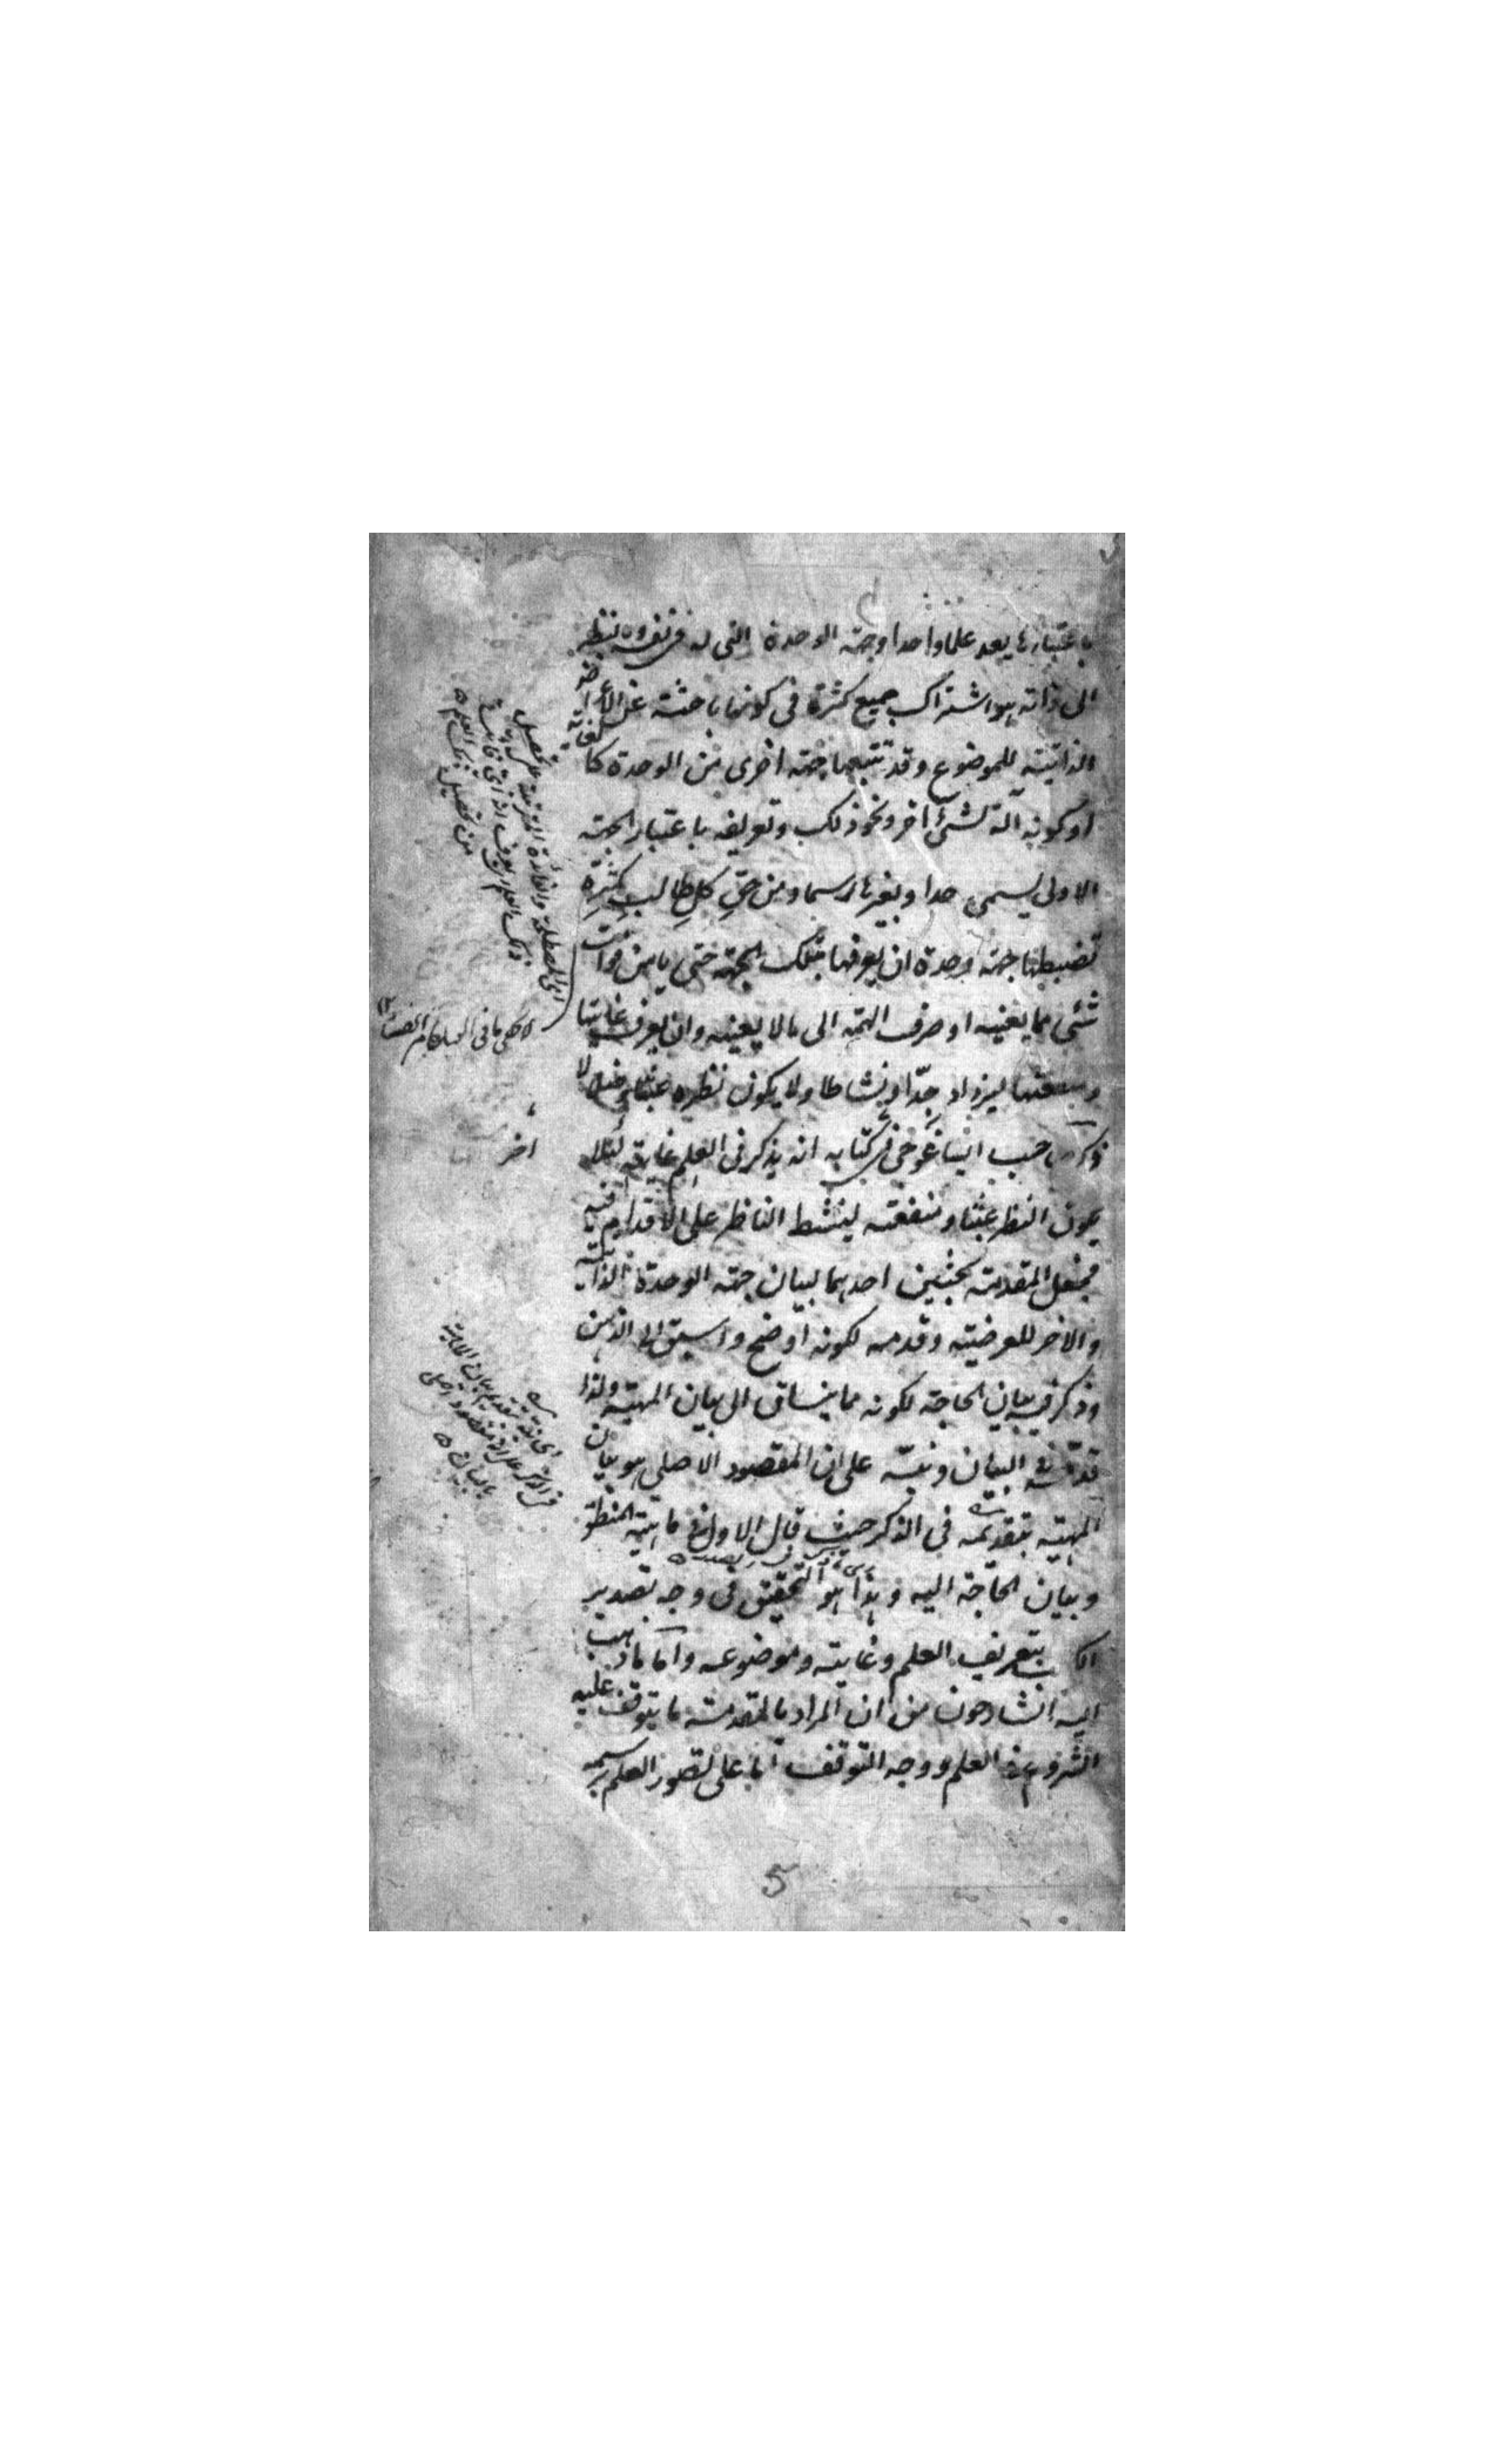 باعتبارها يعد علما واحدا وجهة الوحدة التى له فى نفسه وبنظر
الى ذاته هو اشتراك جميع كثرة فى كونها باحثة عن الأعراض
الذاتية للموضوع وقد تتبعها جهة اخرى من الوحدة كالغاية
او كونه آلة لشئ اخر ونحو ذلك وتعريفه باعتبار الجهة
الاولى يسمى حدا وبغيرها رسما ومن حقِّ كلِ طالبِ كثرةٍ
تضبطها جهة وحدة ان يعرفها بتلك الجهة حتى يامن فوات
شئ مما يعنيه او صرف الهمة الى ما لا يعنيه وان يعرف غايتها
ومنفعتها ليزداد جدّا ونشاطا ولا يكون نظره عبثا وضلالا
ذكر صاحب ايساغوجى فى كتابه انه يذكر فى العلم غايته لئلا
يكون النظر عبثا ومنفعته لينشط الناظر على الاقدام فيه
فجعل المقدمة بحثين احدهما لبيان جهة الوحدة الذاتية
والاخر للعرضية وقدمه لكونه اوضح واسبق الى الذهن
وذكر فيه بيان الحاجة لكونه مما ينساق الى بيان المهية ولذا
قدّمه فى البيان ونبّه على ان المقصود الاصلى هو بيان
المهية بتقديمه فى الذكر حيث قال الاول فى ماهية المنطق
وبيان الحاجة اليه وهذا هو التحقيق فى وجه تصدير
الكتاب بتعريف العلم وغايته وموضوعه واما ما ذهب
اليه الشارحون من ان المراد بالمقدمة ما يتوقف عليه
الشروع فى العلم ووجه التوقف اما على تصور العلم برسمه
اخر
5